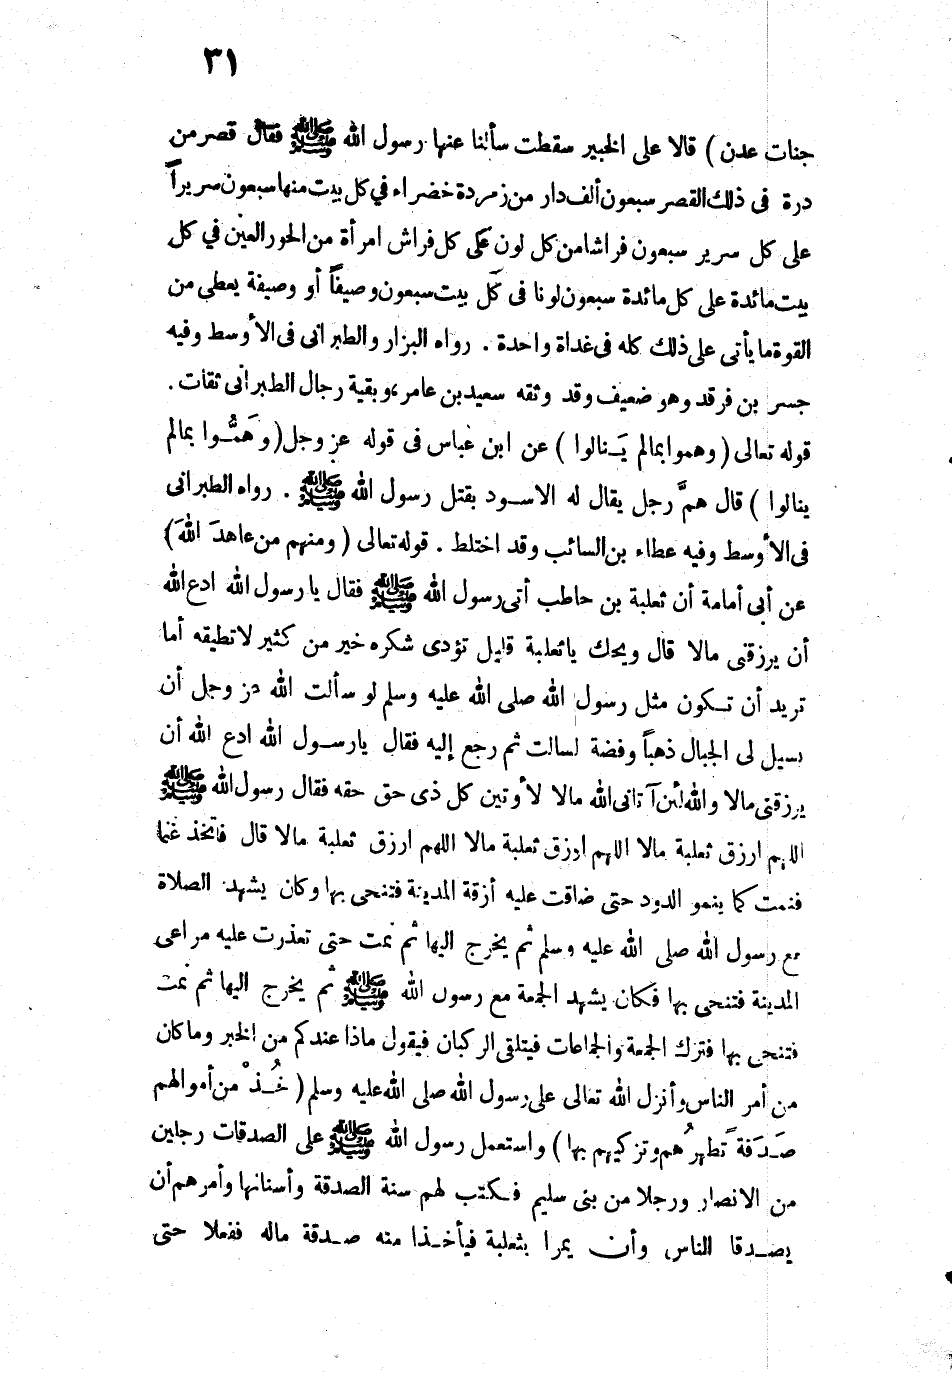 ٣١
جنات عدن ) قالا على الخبير سقطت سألنا عنها رسول الله ﷺ فقال قصر من
درة فى ذلك القصر سبعون ألف دار من زمردة خضراء في كل بيت منها سبعون سريراً
على كل سرير سبعون فراشا من كل لون على كل فراش امرأة من الحور العين في كل
بيت مائدة على كل مائدة سبعون لونا فى كل بيت سبعون وصيفاً أو وصيفة يعطى من
القوة ما يأتى على ذلك كله فى غداة واحدة . رواه البزار والطبرانى فى الأوسط وفيه
جسر بن فرقد وهو ضعيف وقد وثقه سعيد بن عامر، وبقية رجال الطبرانى ثقات .
قوله تعالى ( وهموا بمالم يَـنالوا ) عن ابن عباس فى قوله عز وجل ( وَهمُّـوا بمالم
ينالوا ) قال همَّ رجل يقال له الاسـود بقتل رسول الله ﷺ . رواه الطبرانى
فى الأوسط وفيه عطاء بن السائب وقد اختلط . قوله تعالى ( ومنهم من عاهدَ اللهَ )
عن أبى أمامة أن ثعلبة بن حاطب أتى رسول الله ﷺ فقال يا رسول الله ادع الله
أن يرزقنى مالا قال ويحك يا ثعلبة قليل تؤدى شكره خير من كثير لا تطيقه أما
تريد أن تـكون مثل رسول الله صلى الله عليه وسلم لو سألت الله عز وجل أن
يسيل لى الجبال ذهباً وفضة لسالت ثم رجع إليه فقال يا رسـول الله ادع الله أن
يرزقنى مالا والله لئن آتانى الله مالا لأوتين كل ذى حق حقه فقال رسول الله ﷺ
اللهم ارزق ثعلبة مالا اللهم ارزق ثعلبة مالا اللهم ارزق ثعلبة مالا قال فاتخذ غنما
فنمت كما ينمو الدود حتى ضاقت عليه أزقة المدينة فتنحى بها وكان يشهد الصلاة
مع رسول الله صلى الله عليه وسلم ثم يخرج اليها ثم نمت حتى تعذرت عليه مراعى
المدينة فتنحى بها فكان يشهد الجمعة مع رسول الله ﷺ ثم يخرج اليها ثم نمت
فتنحى بها فترك الجمعة والجماعات فيتلقى الركبان فيقول ماذا عندكم من الخبر وما كان
من أمر الناس وأنزل الله تعالى على رسول الله صلى الله عليه وسلم ( خُـذْ من أموالهم
صَـدَقة ًتطهرُهم وتزكيهم بها ) واستعمل رسول الله ﷺ على الصدقات رجلين
من الانصار ورجلا من بنى سليم فـكتب لهم سنة الصدقة وأسنانها وأمرهم أن
يصـدقا الناس وأن يمرا بثعلبة فيأخـذا منه صـدقة ماله ففعلا حتى